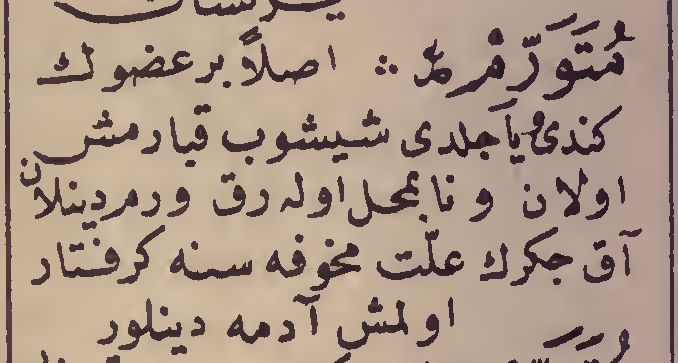 مُتَوَرِّمْ ع‍ : اصلاً بر عضوك
كندی یا جلدی شیشوب قبارمش
اولان و نابمحل اوله رق ورم دینلان
آق جكرك علّت مخوفه سنه كرفتار
اولمش آدمه دینلور